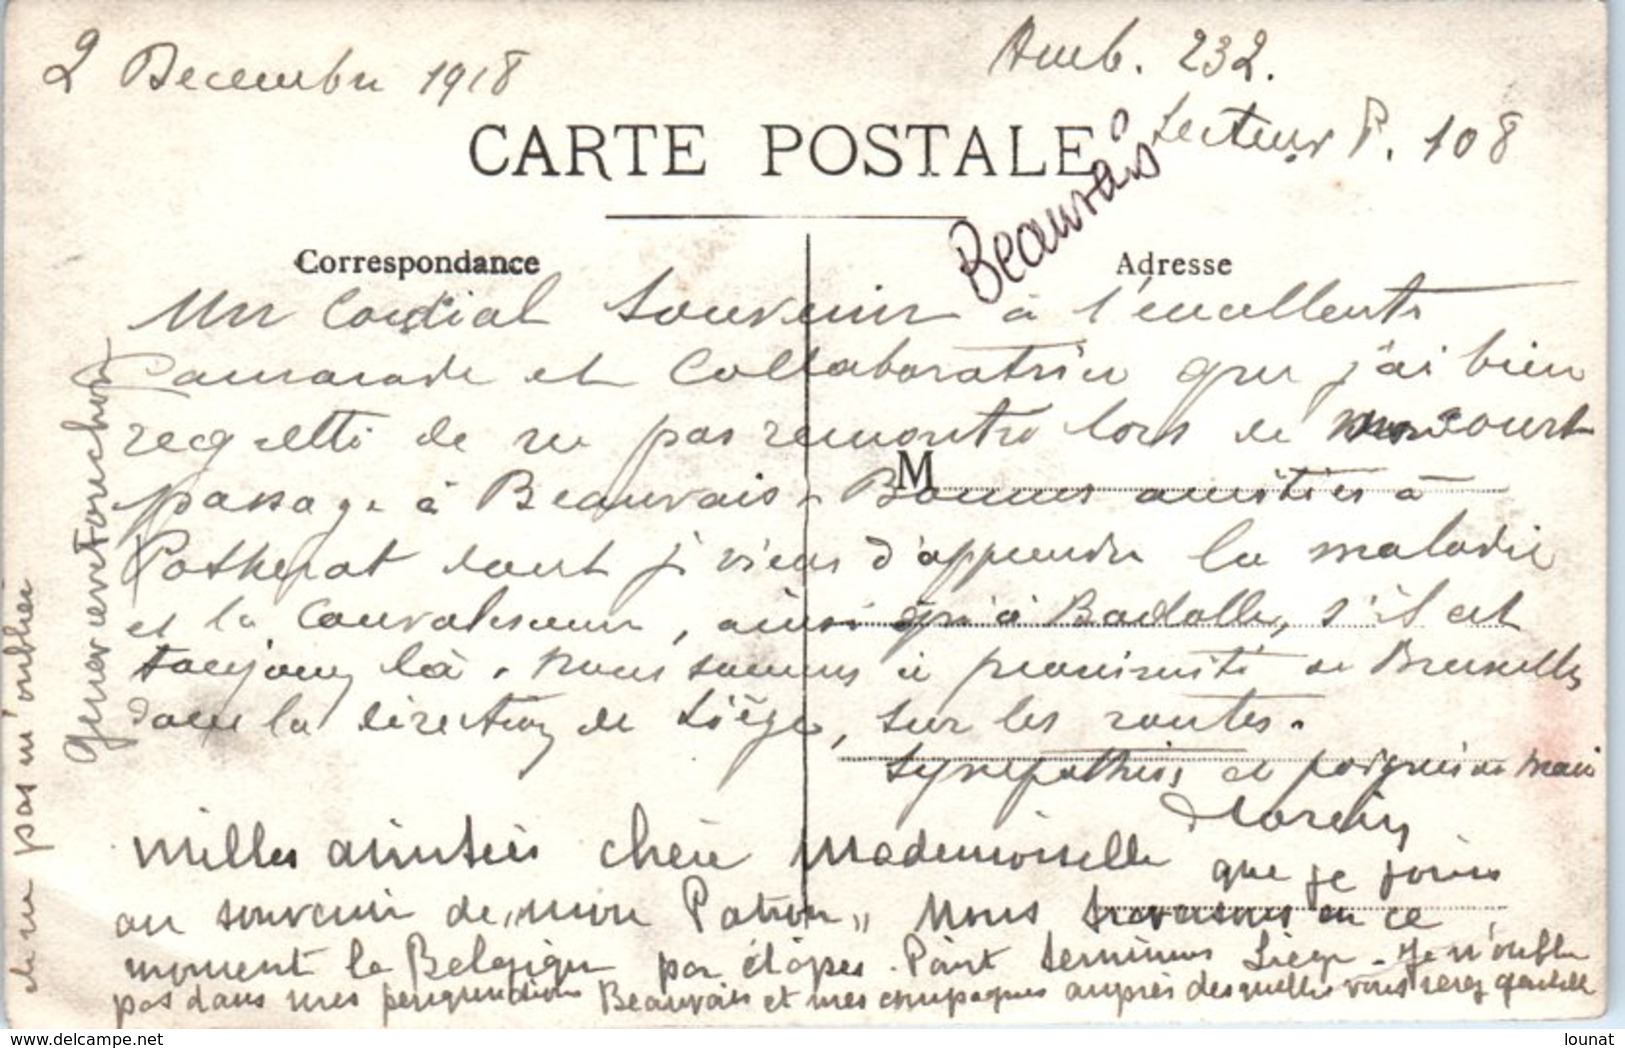 2 Decembre 1918
Amb. 232.
Secteur P. 108
CARTE POSTALE
Beauvais
Correspondance
Adresse
Un Cordial Souvenir à l'excellente
Camarade et Collaboratrice que j'ai bien
regretté de ne pas rencontré lors de mon court
passage à Beauvais. Bonnes amitiés à
M
Potherat dont je viens d'apprendre la maladie
et la Convalescence, ainsi qu'à Badolle, s'il est
toujours là. Nous sommes à proximité de Bruxelles
dans la direction de Liège, sur les routes.
Sympathies et poignées de main
Milles amitiés chère Mademoiselle que je joins
au souvenir de "mon Patron" Nous traversons en ce
moment la Belgique par étapes. Point terminus Liège - Je n'oublie
pas dans mes pérégrinations Beauvais et mes compagnes auprès desquelles vous serez gentille
de ne pas m'oublier
Genevieve Fouchon
lounat